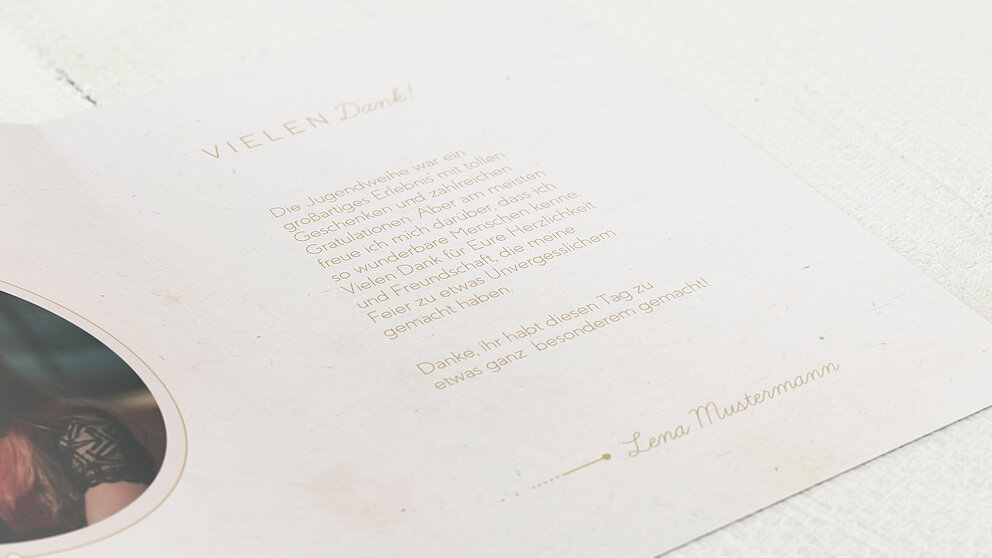 VIELEN Dank!
Die Jugendweihe war ein
großartiges Erlebnis mit tollen
Geschenken und zahlreichen
Gratulationen. Aber am meisten
freue ich mich darüber, dass ich
so wunderbare Menschen kenne.
Vielen Dank für Eure Herzlichkeit
und Freundschaft, die meine
Feier zu etwas Unvergesslichem
gemacht haben.
Danke, ihr habt diesen Tag zu
etwas ganz besonderem gemacht!!
Lena Mustermann